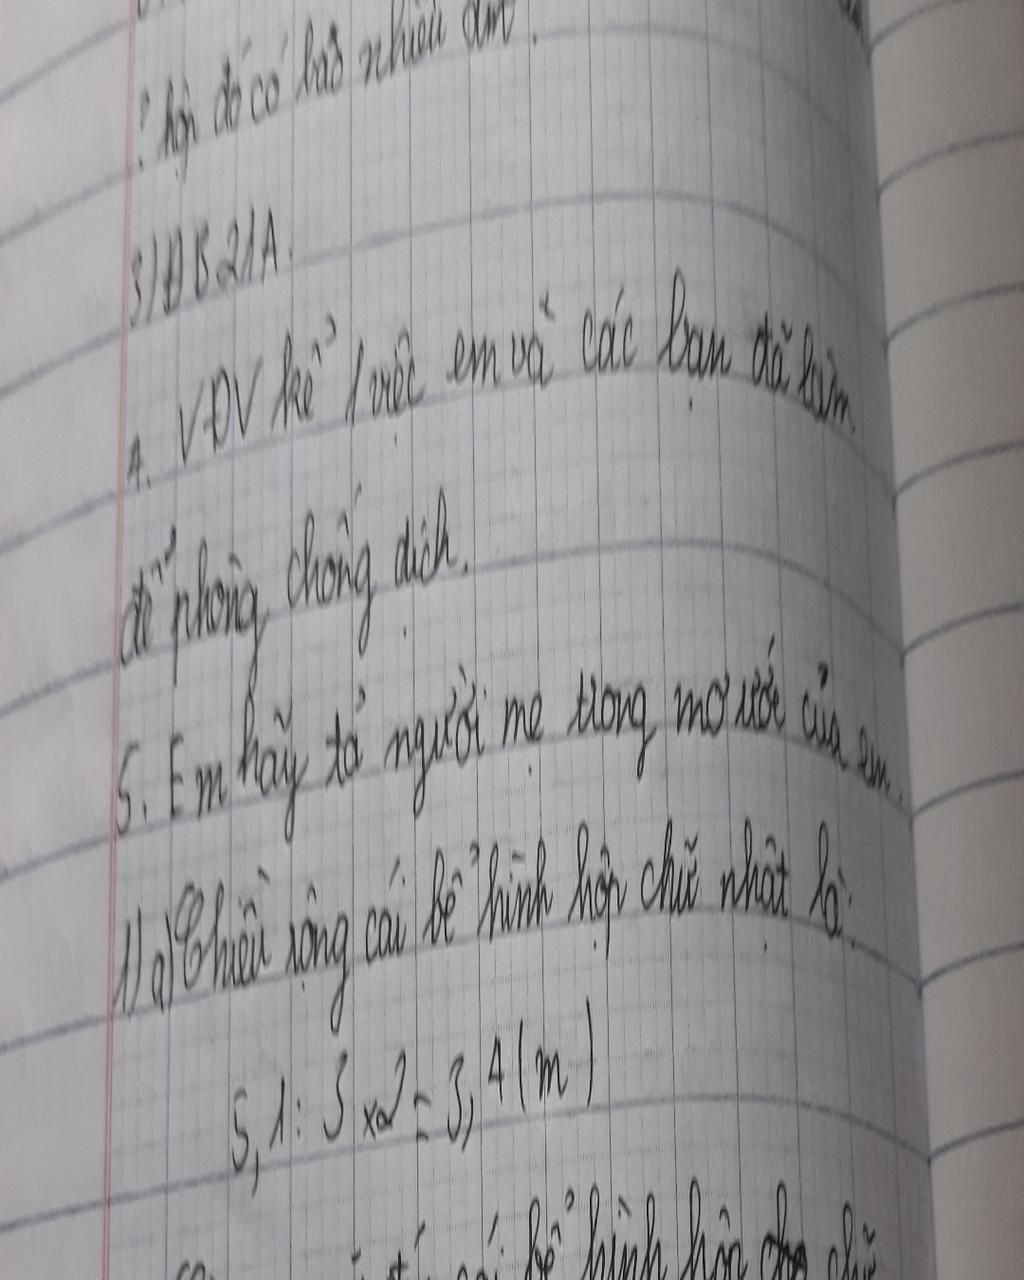 hộp đó có bao nhiêu dm.
3) ĐB 21A.
4. VĐV kể 1 việc em và các bạn đã làm
để phòng chống dịch.
5. Em hãy tả người mẹ trong mơ ước của em.
1) a) Chiều rộng cái bể hình hộp chữ nhật là:
5,1 : 3 x 2 = 3,4 (m)
bể hình hộp chữ